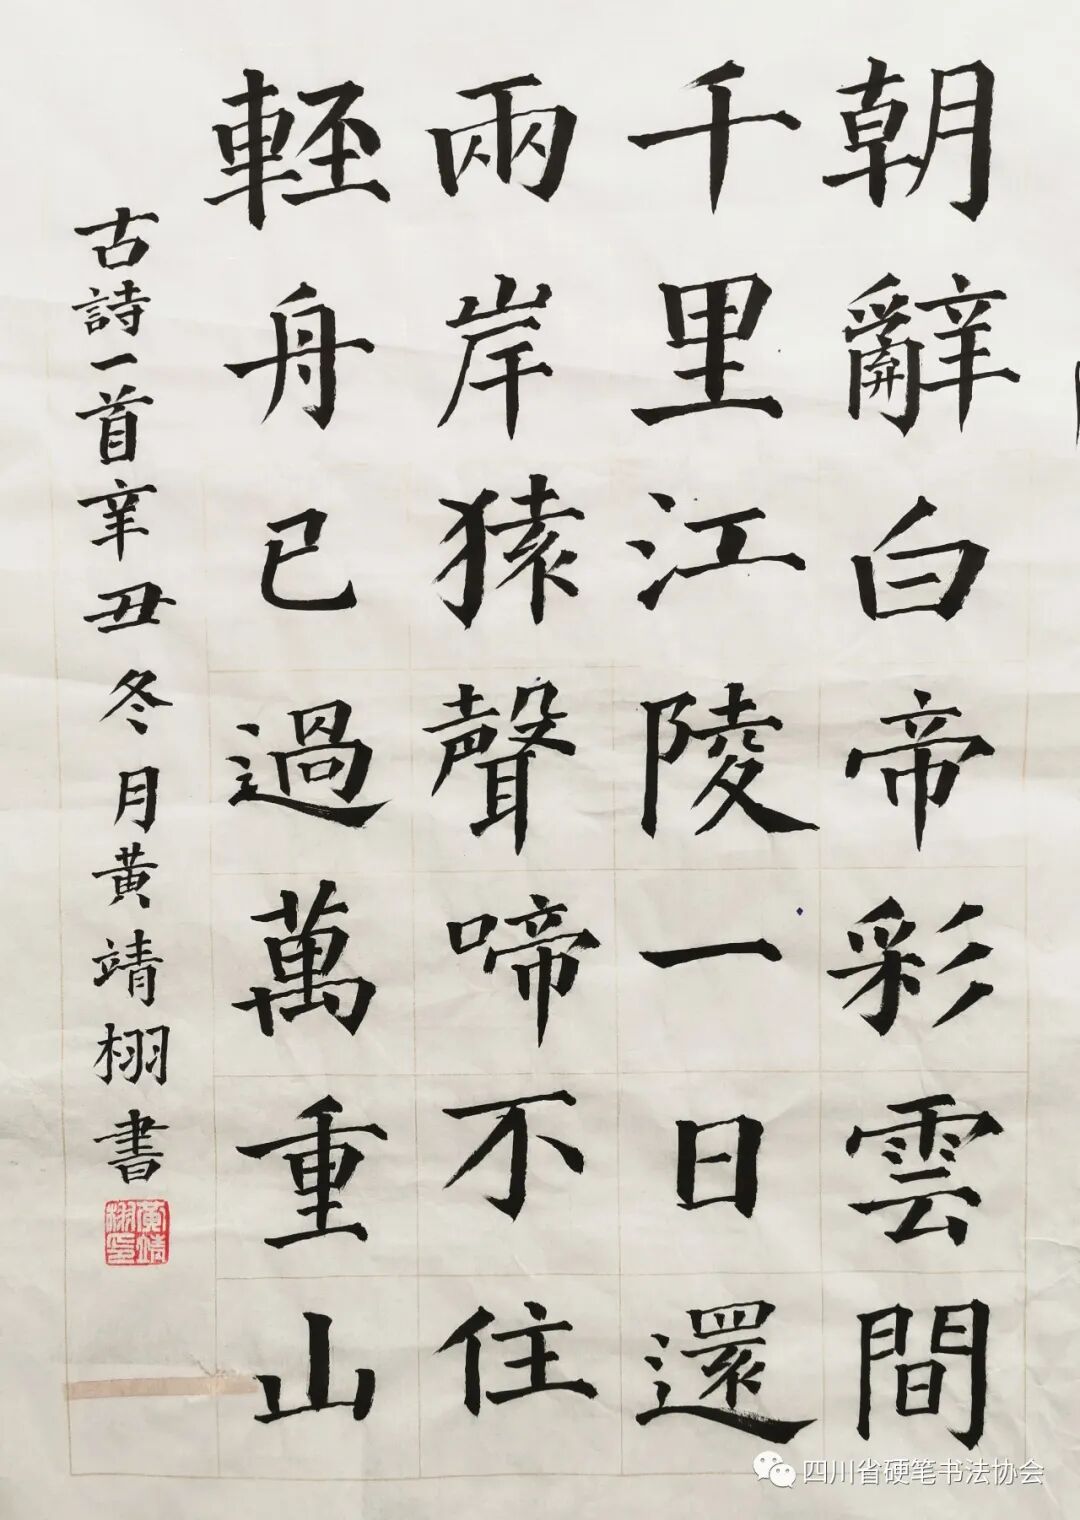 朝辭白帝彩雲間
千里江陵一日還
兩岸猿聲啼不住
輕舟已過萬重山
古詩一首辛丑冬月黄靖栩書
黄靖栩印
四川省硬笔书法协会